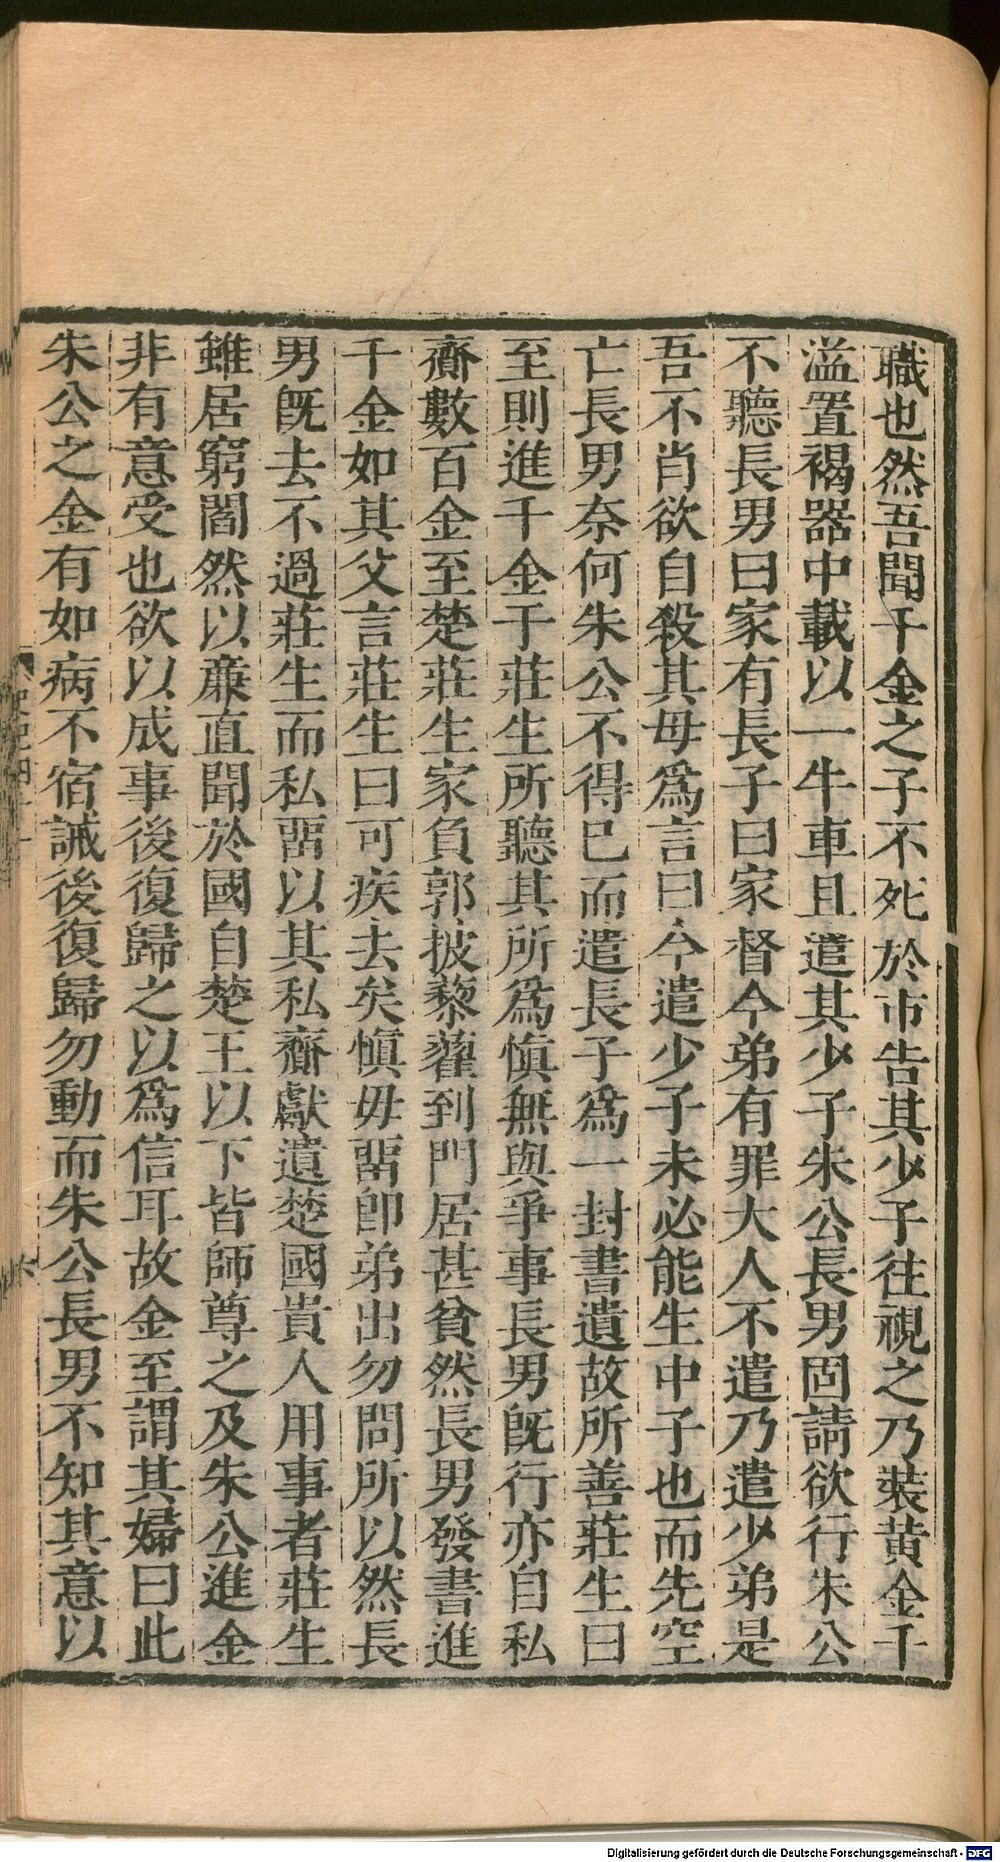 職也然吾聞千金之子不死於市告其少子往視之乃裝黃金千
溢置褐器中載以一牛車且遣其少子朱公長男固請欲行朱公
不聽長男曰家有長子曰家督今弟有罪大人不遣乃遣少弟是
吾不肖欲自殺其母爲言曰今遣少子未必能生中子也而先空
亡長男奈何朱公不得已而遣長子爲一封書遺故所善莊生曰
至則進千金于莊生所聽其所爲愼無與爭事長男旣行亦自私
齎數百金至楚莊生家負郭披藜藿到門居甚貧然長男發書進
千金如其父言莊生曰可疾去矣愼毋畱卽弟出勿問所以然長
男旣去不過莊生而私畱以其私齎獻遺楚國貴人用事者莊生
雖居窮閻然以亷直聞於國自楚王以下皆師尊之及朱公進金
非有意受也欲以成事後復歸之以爲信耳故金至謂其婦曰此
朱公之金有如病不宿誡後復歸勿動而朱公長男不知其意以
Digitalisierung gefördert durch die Deutsche Forschungsgemeinschaft - DFG